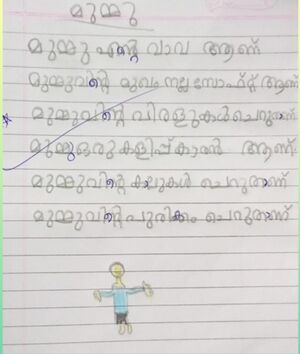 മുമ്മു
മുമ്മു എന്റെ വാവ ആണ്
മുമ്മുവിന്റെ മുഖം നല്ല സോഫ്റ്റ് ആണ്
മുമ്മുവിന്റെ വിരളുകൾ ചെറുതാണ്
മുമ്മു ഒരു കളിപ്പ് കാരൻ ആണ്
മുമ്മുവിന്റെ കാലുകൾ ചെറുതാണ്
മുമ്മുവിന്റെ പുരികം ചെറുതാണ്